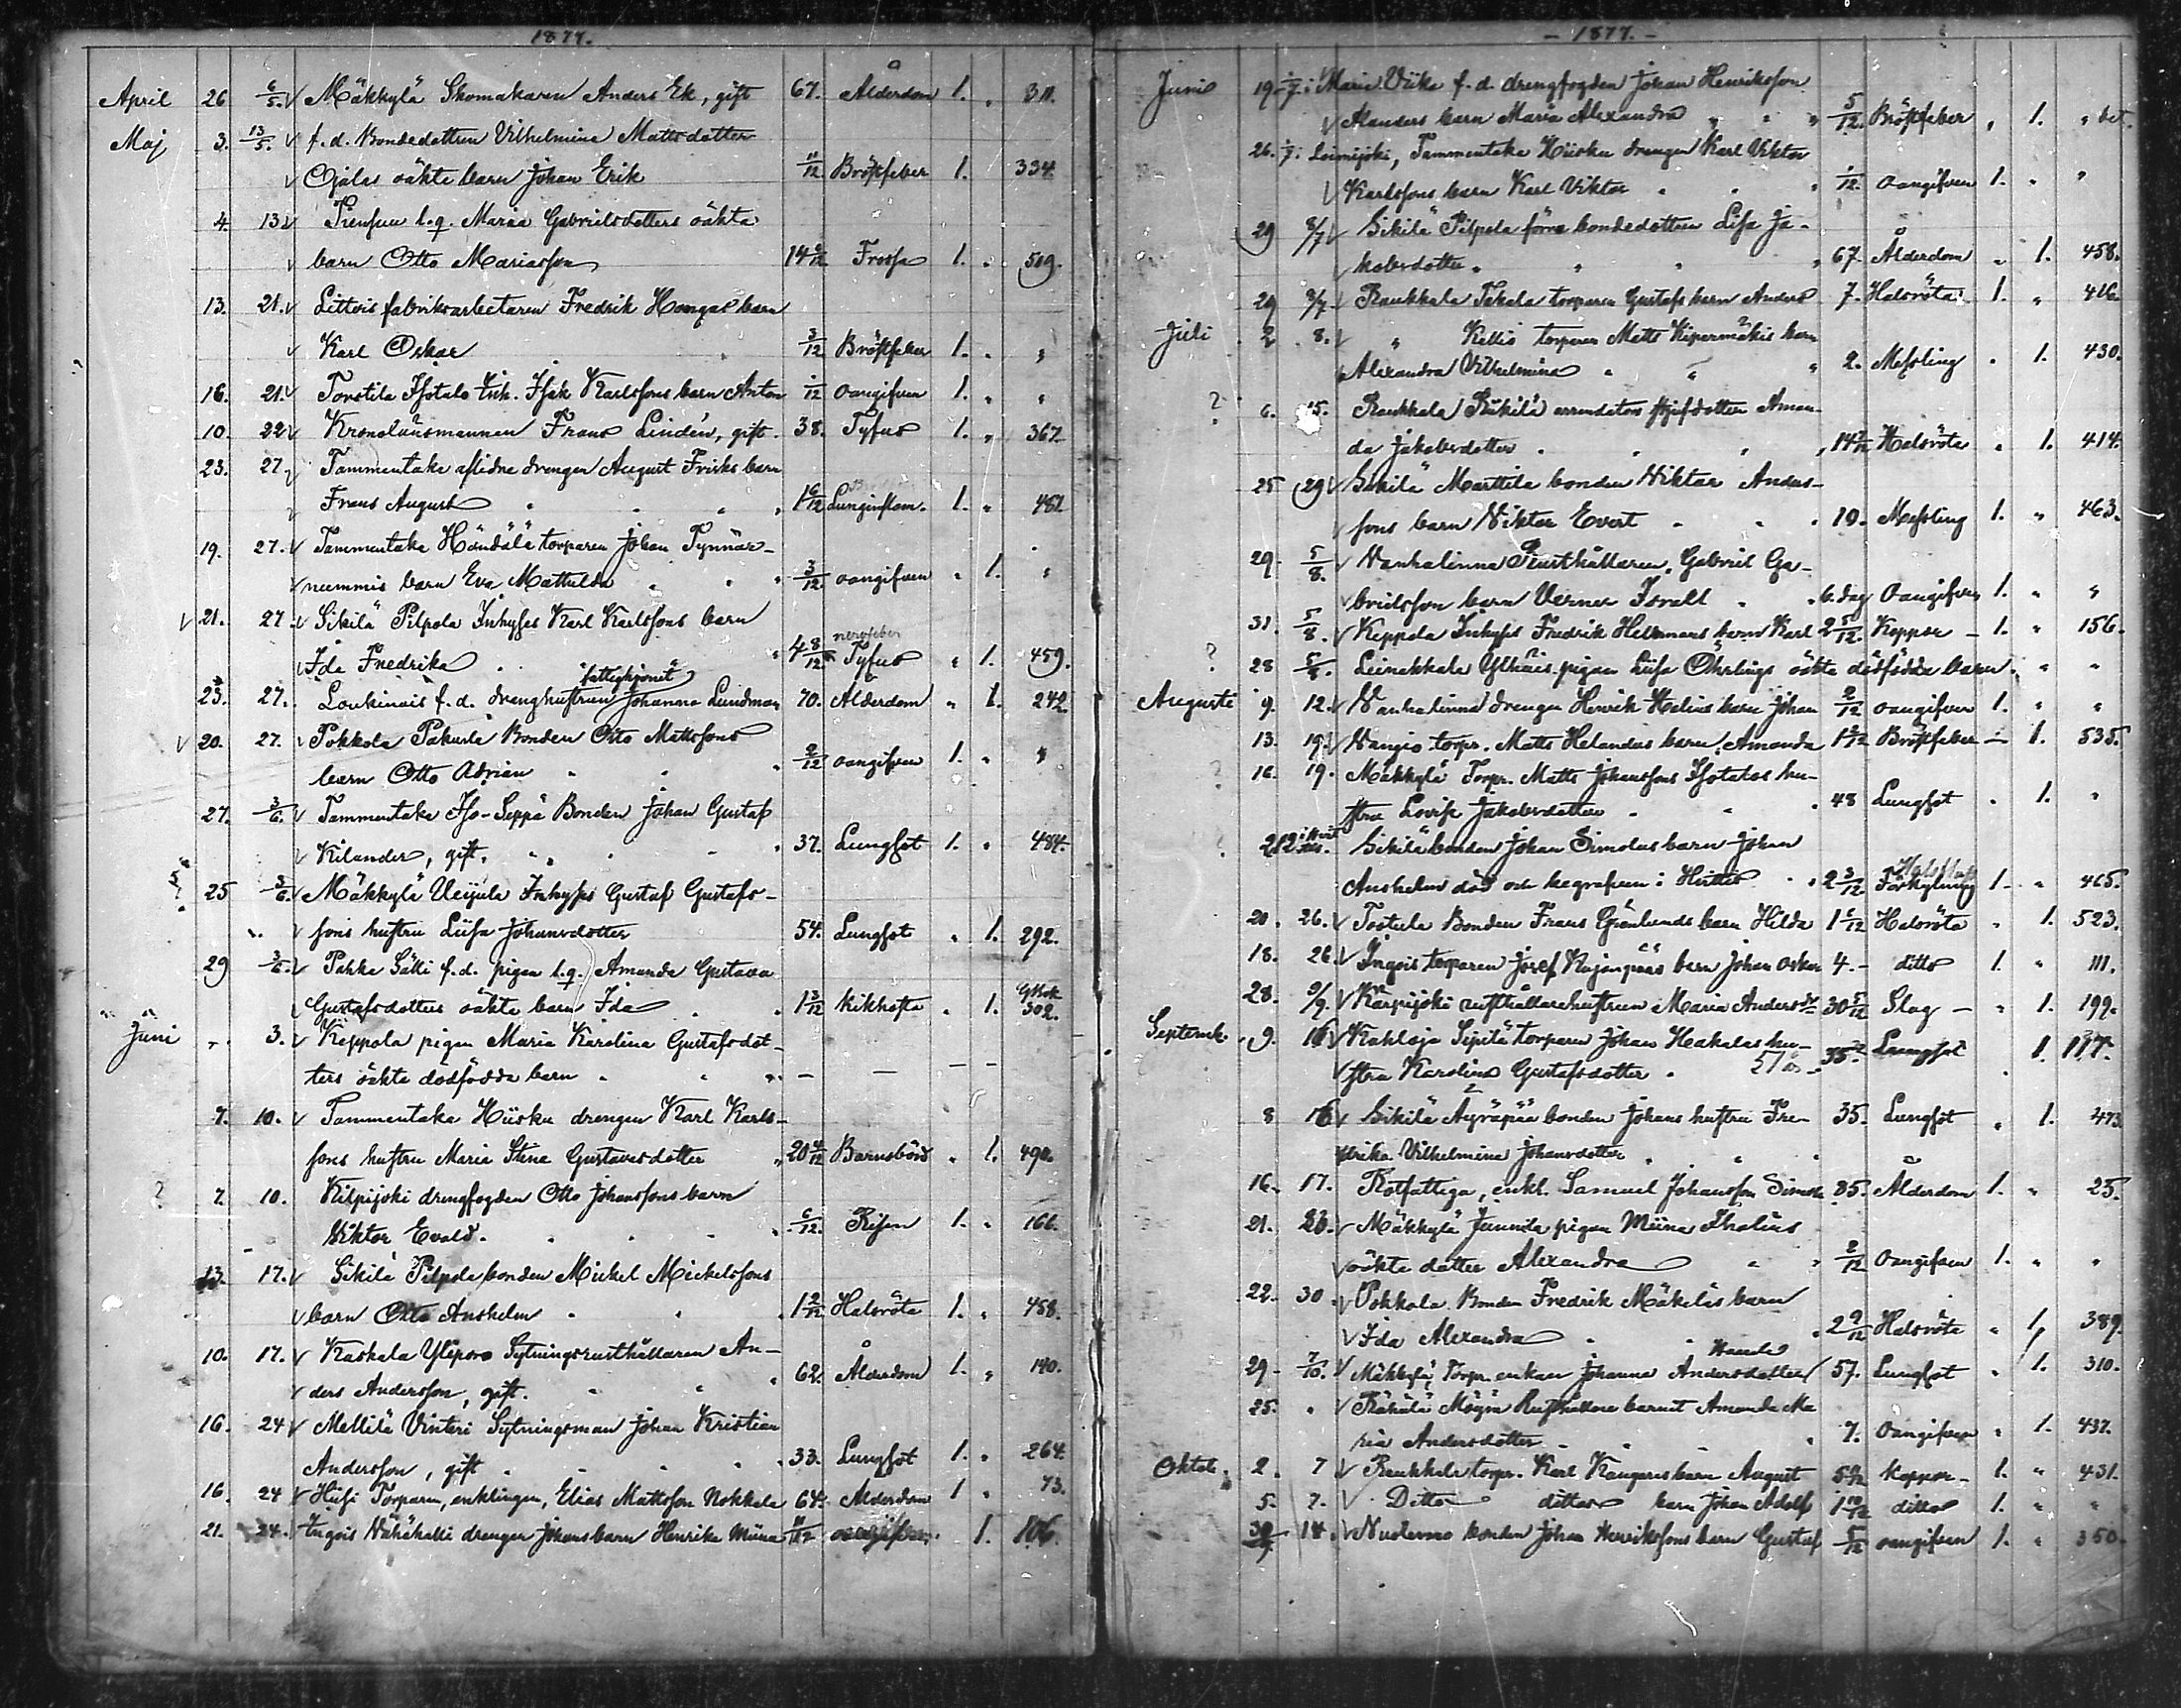 1877.
April 26 6/5. Mäkkylä Skomakaren Anders Ek, gift 67. Ålderdom 1. 311.
Maj 3. 13/5. f. d. Bondedottren Vilhelmina Mattsdotter
Ojalas oäkta barn Johan Erik 11/12 Bröstfeber 1. 334.
4. 13 l. q. Maria Gabrielsdotters oäkta
barn Otto Mariasson 14 Frossa 1. 509.
13. 21. Littois fabriksarbetaren Fredrik Hongas barn
Karl Oskar 3/12 Bröstfeber 1. "
16. 21. Torstila Isotalo Inh. Isak Karlssons barn Anton /12 oangifven 1. "
10. 22 Kronolänsmannen Frans Lindén, gift. 38. Tyfus 1. " 367.
23. 27. Tammentaka aflidne drengen August Frisks barn
Frans August 1 6/12 Lunginflam. 1. " 481.
19. 27. Tammentaka Händälä torparen Johan Tynnär-
nummis barn Eva Mathilda 3/12 oangifven " 1. "
21. 27. Sikilä Pilpola Inhyses Karl Karlssons barn
nervfeber
Ida Fredrika 4 8/12 Tyfus " 1. 459.
fattighjonet
23. 27. Loukinais f. d. drenghustrun Johanna Lundman 70. Ålderdom " 1. 242.
20. 27. Pokkola Pakurla Bonden Otto Mattssons
barn Otto Adrian 2/12 oangifven 1. " "
27. 3/6. Tammentaka Iso-Seppä Bonden Johan Gustaf
Kilander, gift. 37. Lungsot 1. " 484.
25 3/6. Mäkkylä Inhyses Gustaf Gustafs-
sons hustru Liisa Johansdotter 54. Lungsot " 1. 292.
29 3/6. Pahka Sälli f. d. pigan l. q. Amanda Gustava
Gustafsdotters oäkta barn Ida 1 3/12 Kikhosta " 1. 302.
Juni " 3. Keppola pigan Maria Karolina Gustafsdot-
ters oäkta dödfödda barn — — — —
7. 10. Tammentaka Hiisku drengen Karl Karls-
sons hustru Maria Stina Gustavsdotter 20 4/12 Barnsbörd " 1. 490.
? 7. 10. Kilpijoki drengfogden Otto Johanssons barn
Viktor Evald. 6/12 Risen 1. " 166.
13. 17. Sikilä Pilpola bonden Mickel Mickelssons
barn Otto Anshelm 1 2/12 Halsröta 1. " 458.
10. 17. Kaskala Ylipere Sytningsrusthållaren An-
ders Andersson, gift. 62. Ålderdom 1. " 140.
16. 24 Mellilä Vinteri Sytningsman Johan Kristian
Andersson, gift 33. Lungsot 1. " 264.
16. 24 Torparen, enklingen, Elias Mattsson Nokkala 64. Ålderdom 1 " 73.
21. 24. Ingois Vähähalli drengen Johans barn Henrika Miina 11/12 oangifven 1. 106.
- 1877. -
Juni 19. /7. Maria Viika f. d. drengfogden Johan Henriksson
Alanders barn Maria Alexandra 5/12. Bröstfeber " 1. "
26. /7. Loimijoki, Tammentaka Hiisku drengen Karl Viktor
Karlssons barn Karl Viktor 1/12. oangifven 1. " "
29 8/7 Sikilä Pilpola förra bondedottren Lisa Ja-
kobsdotter. 67. Ålderdom " 1. 458.
29 8/7 Raukkala Tekala torparen Gustafs barn Anders 7. Halsröta 1. " 416.
Juli 2 8. " Kellis torparen Matts Kipermäkis barn
Alexandra Vilhelmina 2. Messling " 1. 430.
? 6. 15. Raukkala Riikilä arrendators styfdotter Aman-
da Jakobsdotter 14 Halsröta " 1. 414.
25 29 Sikilä Marttila bonden Viktor Anders-
sons barn Viktor Evert 10. Messling 1. " 463.
29. 5/8. Vanhalinna Rusthållaren Gabriel Ga-
brielsson barn Verner Israel 6. dag Oangifven 1. " "
31. 5/8. Keppola Inhyses Fredrik Hellmans barn Karl 2 5/12. Koppor — 1. " 156.
? 28 5/8. Leinakkala pigan Liisa Öhrlings oäkta dödfödda barn " "
Augusti 9. 12. Vanhalinna drengen Henrik Helins barn Johan 2/12 oangifven 1. " "
13. 19. Vangio torpr. Matts Helanders barn Amanda 1 Bröstfeber — 1. 535.
? 16. 19. Mäkkylä Torpr. Matts Johanssons Isotalos hu-
stru Lovisa Jakobsdotter 48 Lungsot " 1. "
? Sikilä bonden Johan Simolas barn Johan
Anshelm död och begrafven i Hirttis 2 3/12 Förkylning 1. " 465.
20. 26. Tostula Bonden Frans Grönlunds barn Hilda 1 Halsröta " 1. 523.
18. 26. Ingois torparen Josef Kajanpääs barn Johan Oskar 4. - ditto 1. " 111.
28. 9/9. Karpijoki rusthållarehustrun Maria Andersdr 30 5/12 Slag — " 1. 199.
Septemb. 9. 16 Kahloja Sipilä torparen Johan Hakalas hu-
stru Karolina Gustafsdotter 51 35. Lungsot 1. 117.
8 16 Sikilä Äyräpää bonden Johans hustru Fre- 35. Lungsot " 1. 473
drika Vilhelmina Johansdotter
16. 17. Rotfattiga, enkl. Samuel Johansson Simola 85. Ålderdom 1. " 25.
21. 23. Mäkkylä Junnila pigan Miina Thalius
oäkta dotter Alexandra 2/12 oangifven 1. " "
22. 30 Pokkola Bonden Fredrik Mäkeläs barn
Ida Alexandra 2 9/12 Halsröta " 1. 389.
29. 7/10. Mäkkylä, Torpr. enkan Johanna Andersdotter 57. Lungsot " 1. 310.
25. " Rähälä Rusthållare barnet Amanda Ma
ria Andersdotter 7. Oangifven " 1. 437.
Oktob. 2. 7 Raukkala torpr. Karl Kangares barn August 5 Koppor - 1. " 431.
5. 7. Ditto dittos barn Johan Adolf 1 10/12 ditto 1. " "
30/9 14. bonden Johan Henrikssons barn Gustaf 5/12 oangifven 1. " 350.